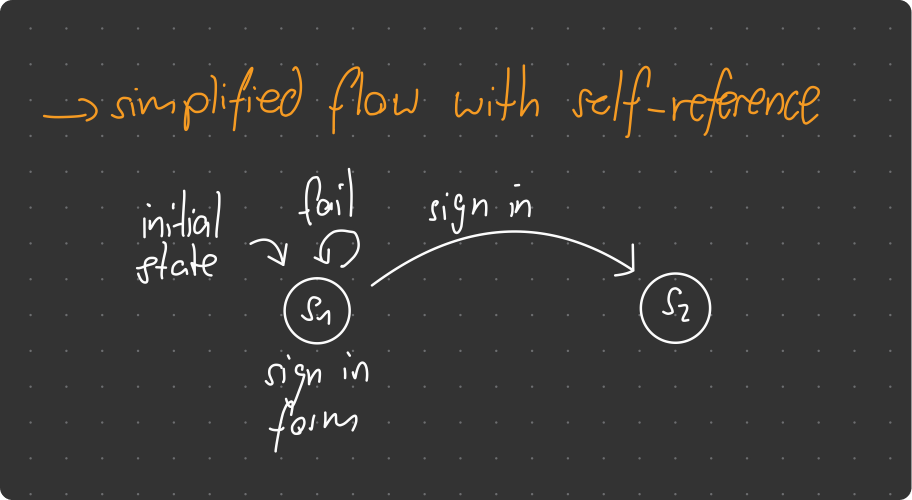 → simplified flow with self-reference
initial
state
fail
sign in
S1
S2
sign in
form